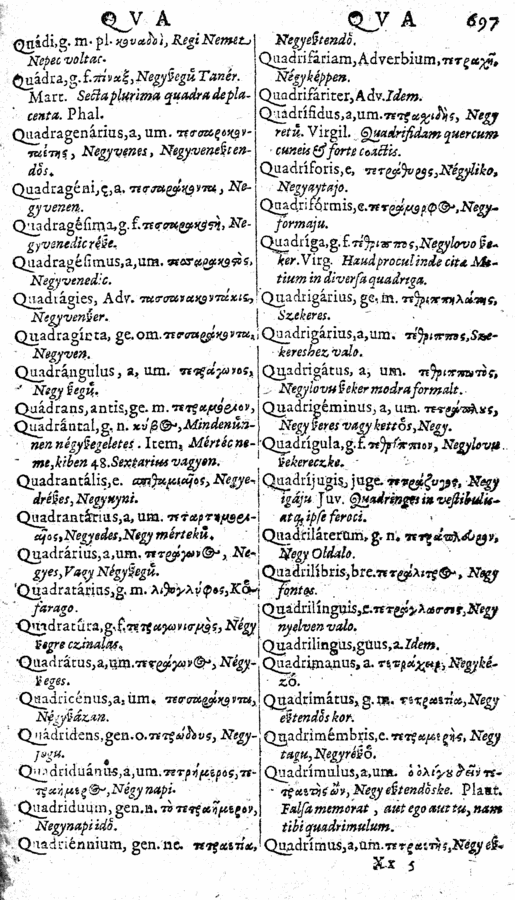 QVA
QVA 697
Quádi, g. m. pl. κουαδοὶ, Regi Nemet
Nepec voltac.
Quádra, g. f. πίναξ, Negyßegű Tanér.
Mart. Secta plurima quadra de pla-
centa. Phal.
Quadragenárius, a, um.
Negyvenes, Negyveneßten-
dős.
Quadragéni, ę, a. Ne-
gyvenen.
Quadragésima, g. f. Ne-
gyvenedic réße.
Quadragésimus, a, um.
Negyvenedic.
Quadrágies, Adv.
Negyvenßer.
Quadragínta, ge. om.
Negyven.
Quadrángulus, a, um. τετράγωνος,
Negy ßegű.
Quádrans, antis, ge. m.
Quadrántal, g. n. κύβος, Mindenűn-
nen négyßegeletes. Item, Mértéc ne-
me, kiben 48. Sextarius vagyon.
Quadrantális, e. Negye-
dréßes, Negyujnyi.
Quadrantárius, a, um.
Negyedes, Negy mértekű.
Quadrárius, a, um. τετράγωνος, Ne-
gyes, Vagy Négyßegű.
Quadratárius, g. m. λιθογλύφος, Kő-
farago.
Quadratúra, g. f. τετραγωνισμὸς, Négy
ßegre czinalas.
Quadrátus, a, um. τετράγωνος, Négy-
ßeges.
Quadricénus, a, um.
Négyßázan.
Quádridens, gen. o. Negy-
Quadriduánus, a, um. τετρήμερος, τε-
τραήμερος, Négy napi.
Quadriduum, gen. n. τὸ τετραήμερον,
Negynapi idő.
Quadriénnium, gen. ne. τετραετία,
Negyeßtendő.
Quadrifáriam, Adverbium, τετραχῆ,
Négyképpen.
Quadrifáriter, Adv. Idem.
Quadrífidus, a, um. Negy
retű. Virgil. Quadrifidam quercum
cuneis & forte coactis.
Quadríforis, e, τετράθυρος, Négyliko,
Negyaytajo.
Quadrifórmis, e. τετράμορφος, Negy-
formaju.
Quadríga, g. f. τέθριππος, Negylovo ße-
ker. Virg. Haud procul inde citæ Me-
tium in diversa quadrigæ.
Quadrigárius, ge, m.
Szekeres.
Quadrigárius, a, um. τέθριππος, Sze-
kereshez valo.
Quadrigátus, a, um.
Negylovu ßeker modra formalt.
Quadrigéminus, a, um.
Negyßeres vagy kettős, Negy.
Quadrígula, g. f. τεθρίππιον, Negylovu
ßekereczke.
Quadríjugis, juge. τετράζυγος, Negy
igáju Juv. Quadringes in vestibulis-
atq; ipse feroci.
Quadriláterum, g. n. τετράπλευρον,
Negy Oldalo.
Quadrilíbris, bre. Negy
fontos.
Quadrilínguis, e. τετράγλωσσις, Negy
nyelven valo.
Quadrilinguus, guus, a. Idem.
Quadrimanus, a. τετράχειρ, Negyké-
ző.
Quadrimátus, g. m. τετραετία, Negy
eßtendős kor.
Quadrimémbris, e. τετραμερὴς, Negy
tagu, Negyréßő.
Quadrímulus, a, um.
Negy eßtendőske. Plaut.
Falsa memorat, aut ego aut tu, nam
tibi quadrimulum.
Quadrímus, a, um. τετραετὴς, Negy eß-
Xx 5